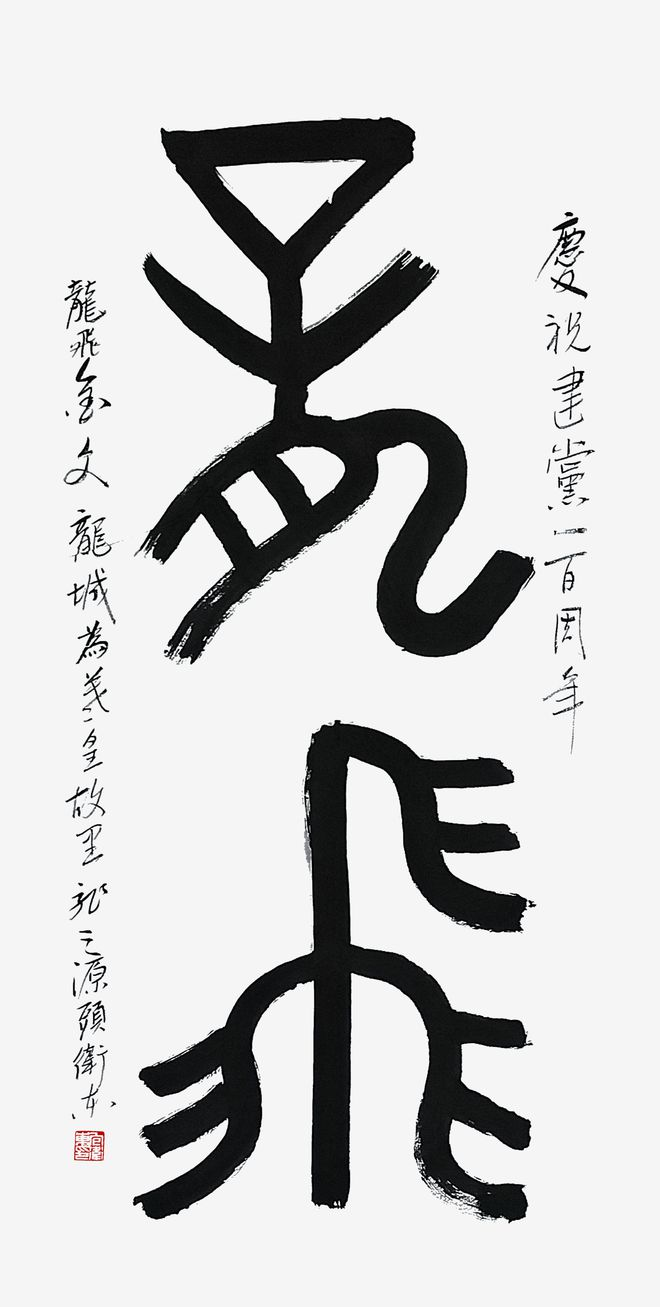 慶祝建黨一百周年
龍飛
龍飛金文 龍城為羲皇故里 龍之源頭衛东